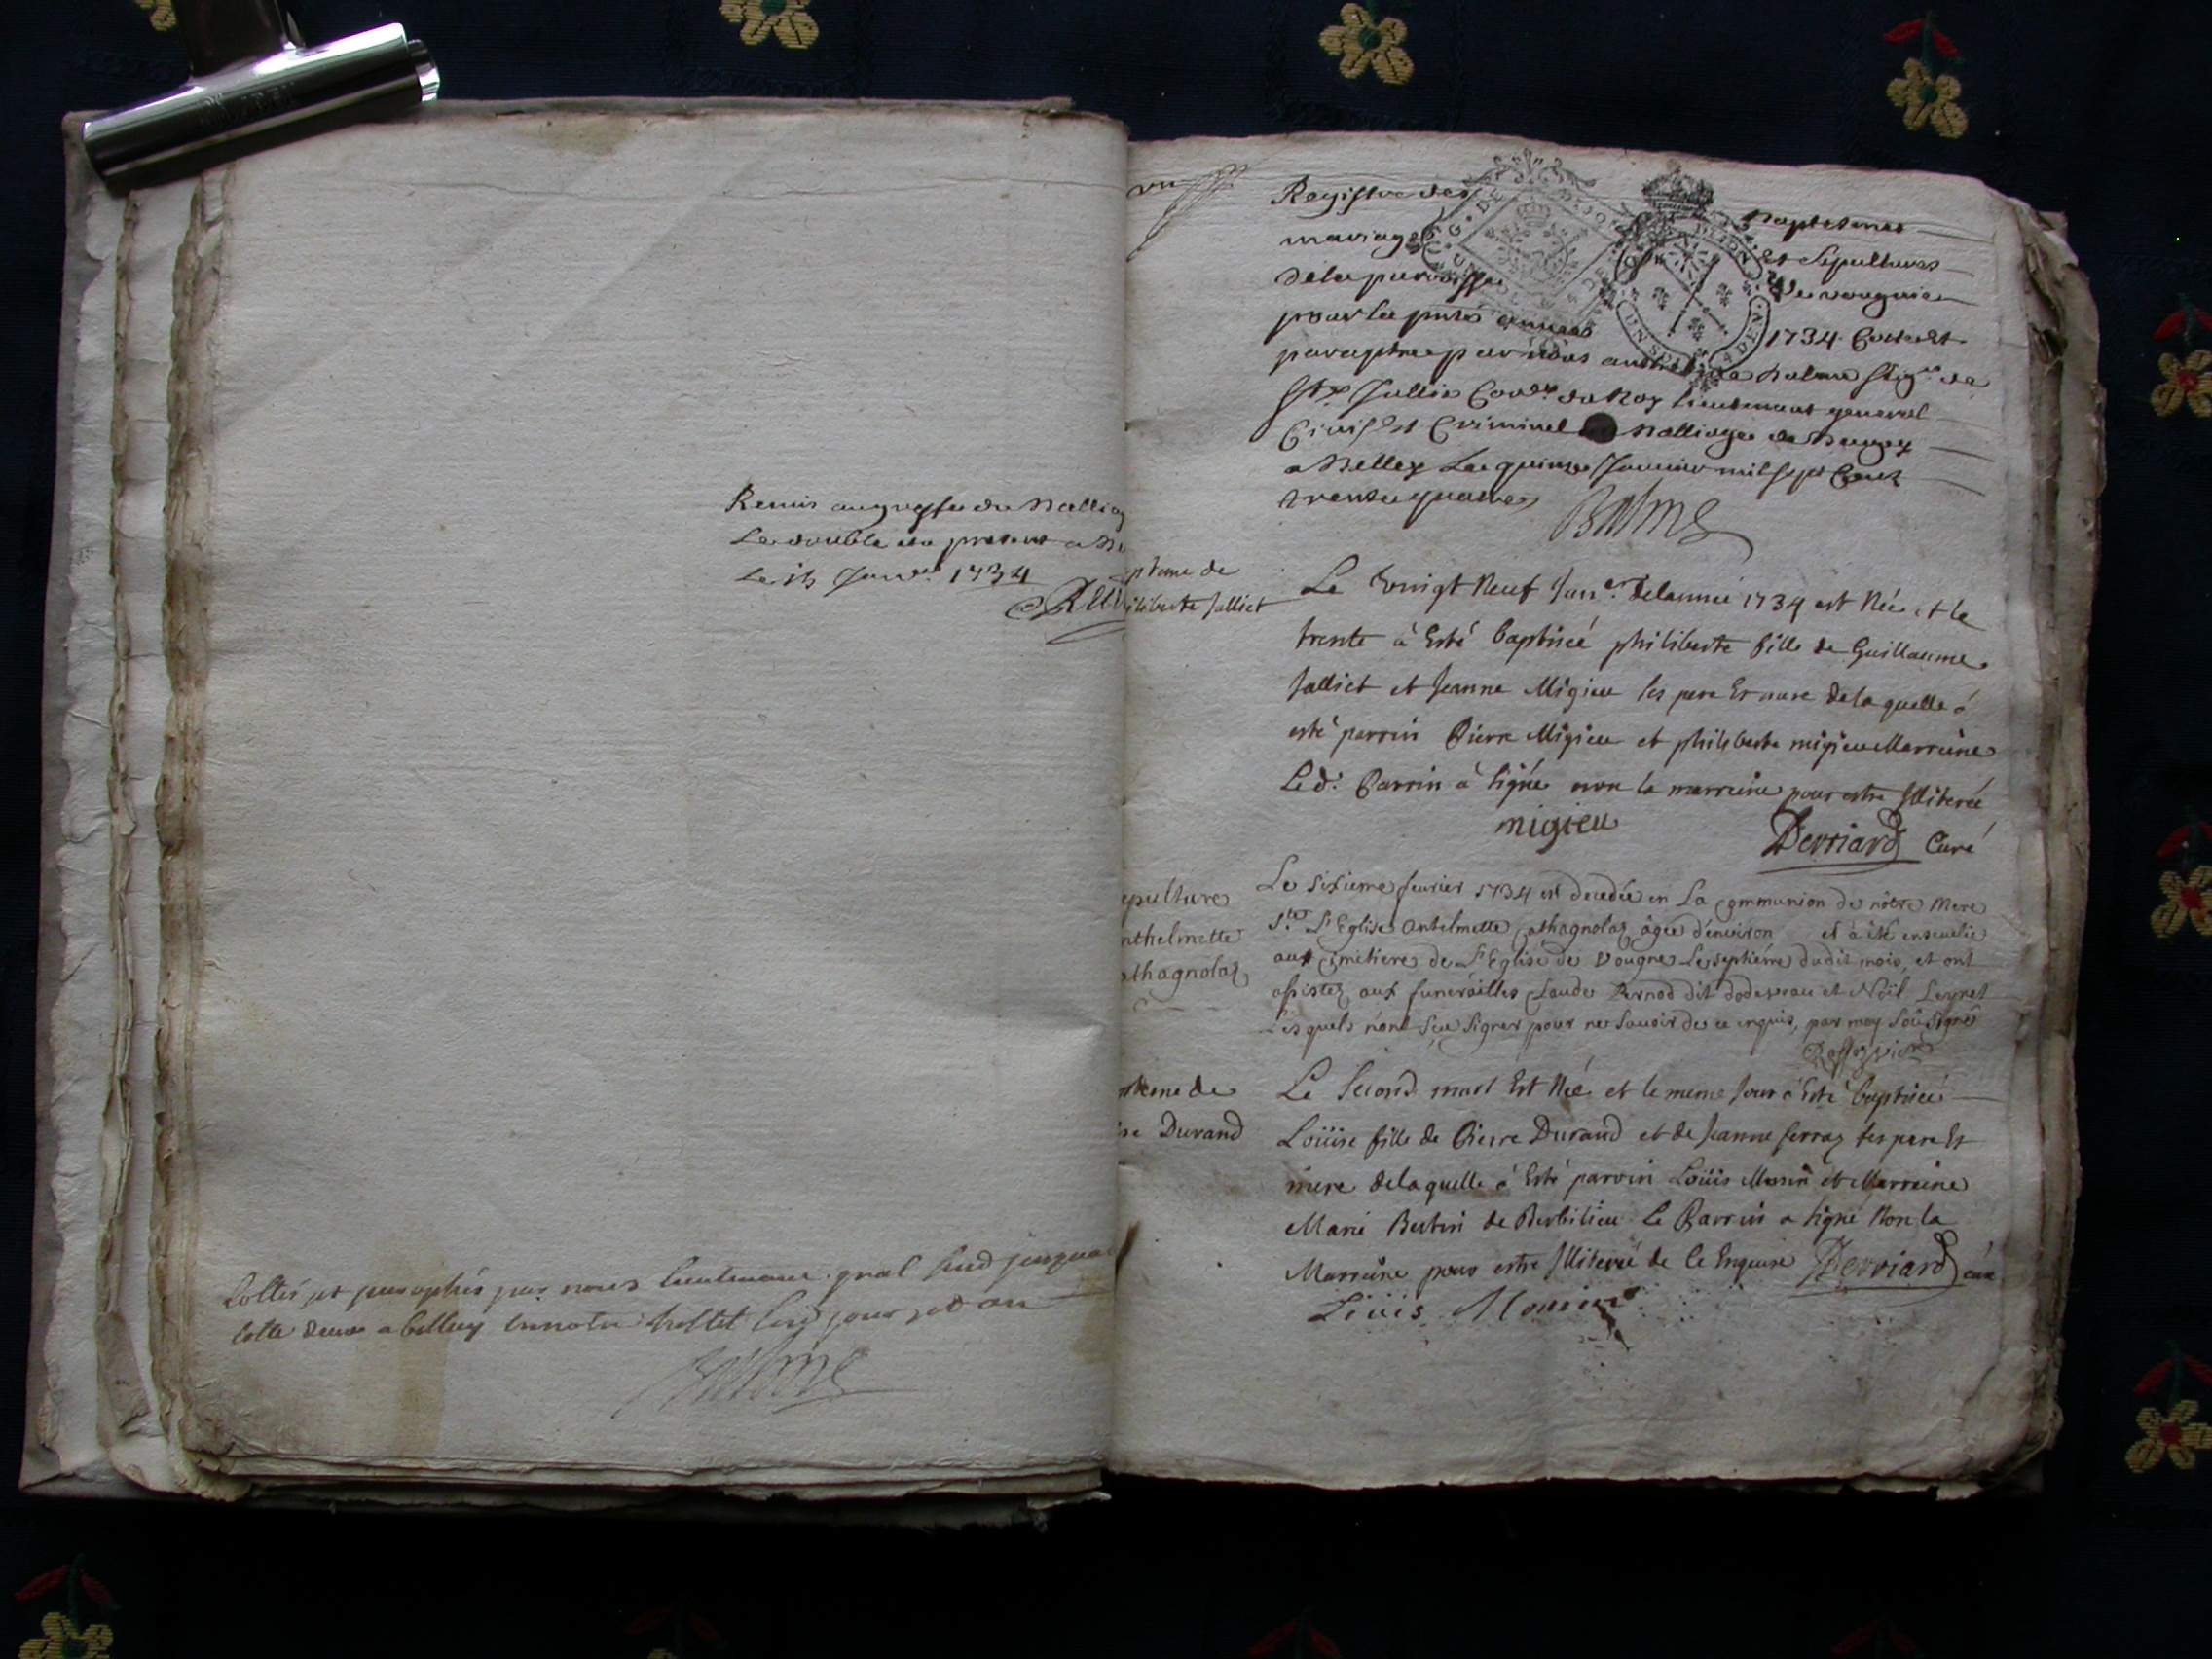 Remis au greffe du Balliag
Le double du present a Be
Le 15 Janver 1734
Cottés et paraphés par nous lieutenant gnal sud jusqua
cotte deux a belley en notre hostel lesd jour et an
Balme
vn
Registre des Baptesmes
mariages et Sepultures
de la parroisse de vougnie
pour la pnte année 1734 Cotté et
paraphée par nous anthelme Balme Seigr de
Ste Jullie Coner du Roy lieutenant general
Civil et Criminel au Balliage de Bugey
a Belley Le quinze Janvier mil sept Cent
trente quatre
Balme
ptme de
iliberte Jalliet
Le vingt Neuf Janer delannée 1734 est Née et le
trente à Esté baptiseé philiberte fille de Guillaume
Jalliet et Jeanne Migieu ses pere Et mere delaquelle á
esté parrin Pierre Migieu et philiberte migieu Marreine
Led. Parrin à signé non la marreine pour estre Illiterée
migieu
Derriard Curé
epulture
nthelmette
athagnolaz
Le Sixieme feurier 1734 est decedée en La Communion de nôtre Mere
Ste L'Eglise Antelmette Cathagnolaz âgée d'enuiron et à été enseuelie
aux Cimetiere de L'Eglise de Vougne Le septiéme dudit mois, et ont
assistez aux funerailles Claude Pernod dit dodeveau et Nöil Leyret
Lesquels n'ont Sçu Signer pour ne Sauoir de ce enquis, par moy Soûsigné
pteme de
ise Durand
Le Second mart Est Née et le meme Jour à Esté baptiseé
Loüise fille de Pierre Durand et de Jeanne ferraz ses pere Et
mere delaquelle á Esté parrin Loüis Monin et Marreine
Marie Bertin de Berbilieu Le Parrin a signé Non la
Marreine pour estre Illiterée de Ce Enquise Derriard curé
Loüis Monin